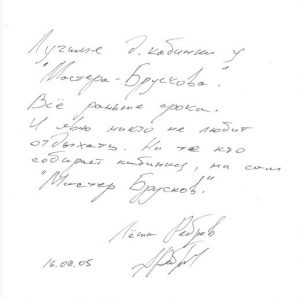 Лучшие д. кабинки у
"Мастера-Брускова".
Всё раньше срока.
И явно никто не любит
отдыхать. Ни те кто
собирает кабинки, ни сам
"Мастер Брусков".
Лёша Ребров
16.09.05